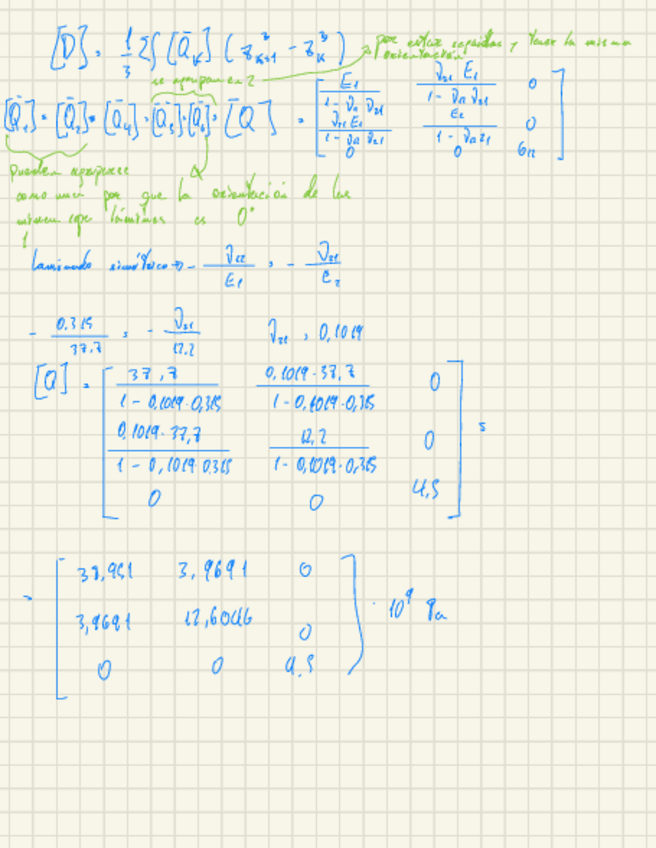 [D] = 1/3 Σ [Q̄_K] (z³_{K+1} - z³_K)
por estar seguidas y tener la misma orientación
se agrupan en 2
[Q̄_1] = [Q̄_2] = [Q̄_4] = [Q̄_5] = [Q̄_6] = [Q] = [ E_1 / (1 - ν_12 ν_21)   ν_21 E_1 / (1 - ν_12 ν_21)   0
ν_21 E_1 / (1 - ν_12 ν_21)   E_2 / (1 - ν_12 ν_21)   0
0   0   G_12 ]
pueden agruparse
como una por que la orientación de las
láminas es 0°
laminado simétrico → - ν_12 / E_1 = - ν_21 / E_2
- 0.315 / 37,7 = - ν_21 / 12.2   ν_21 = 0,1019
[Q] = [ 37,7 / (1 - 0,1019·0,315)   0,1019·37,7 / (1 - 0,1019·0,315)   0
0,1019·37,7 / (1 - 0,1019·0.315)   12,2 / (1 - 0,1019·0.315)   0
0   0   4,5 ] =
= [ 38,951   3,9691   0
3,9691   12,6046   0
0   0   4.5 ] · 10⁹ Pa